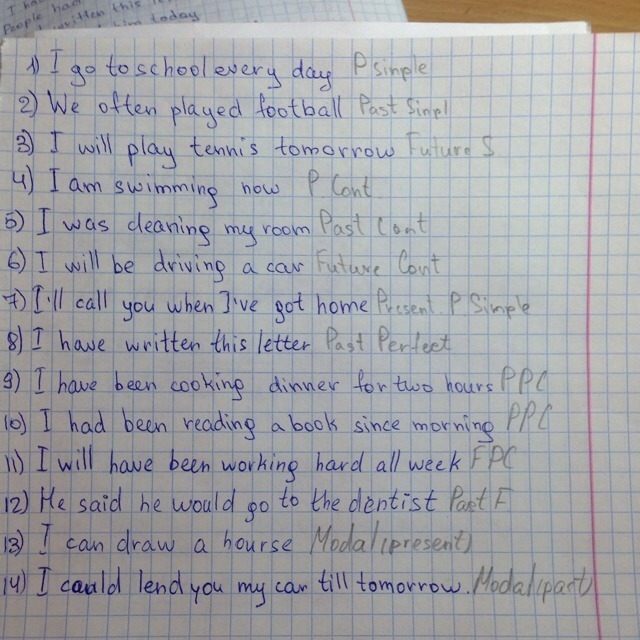 People written this
him today
1) I go to school every day P simple
2) We often played football Past Simpl
3) I will play tennis tomorrow Future S
4) I am swimming now P Cont
5) I was cleaning my room Past Cont
6) I will be driving a car Future Cont
7) I'll call you when I've got home Present P Simple
8) I have written this letter Past Perfect
9) I have been cooking dinner for two hours PPC
10) I had been reading a book since morning PPC
11) I will have been working hard all week FPC
12) He said he would go to the dentist Past F
13) I can draw a hourse Modal (present)
14) I could lend you my car till tomorrow. Modal (past)